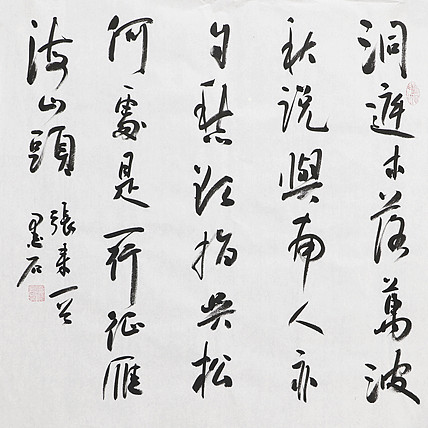 洞庭木落萬波
秋說與南人亦
自愁欲指吳松
何處是一行征雁
海山頭
張耒一首
墨石